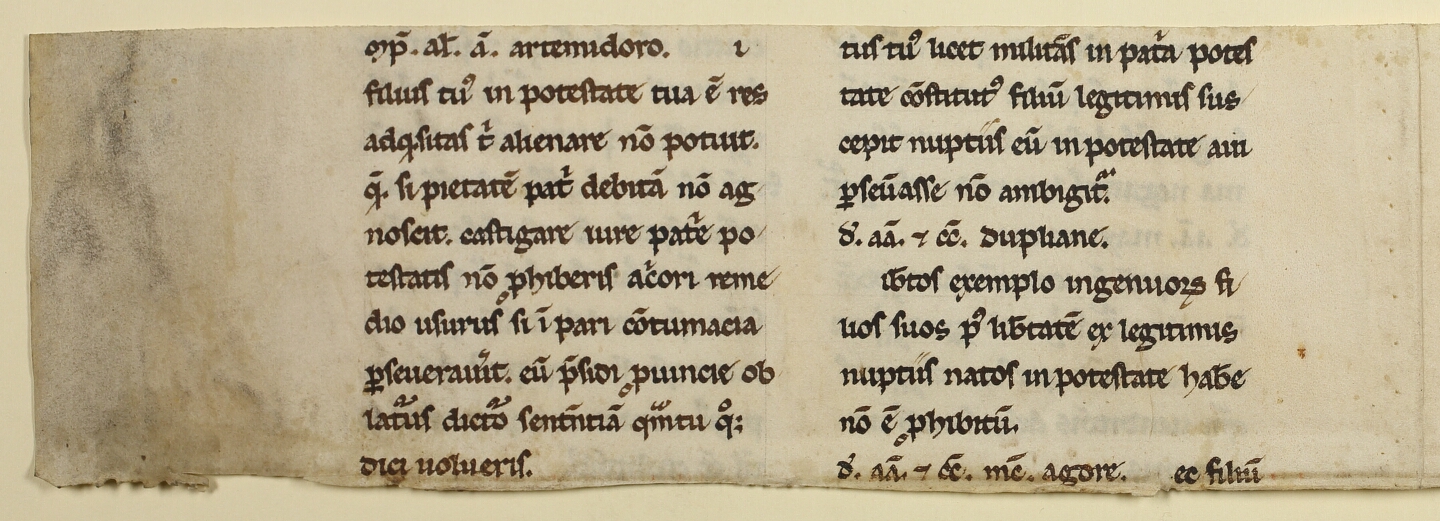 Jmp̄. al̄. ā. artemidoro. i
filius tuꝰ in potestate tua ē res
adq̇sitas t̓ alienare nō potuit.
q̓. si pietatē pat̓ debitā nō ag
noscit. castigare iure pat̓e po
testatis nō ꝓhiberis ac̓ori reme
dio usurus si ī pari cōtumacia
ꝑseuerauit̓. eū p̄sidi ꝓuincie ob
latuꝛus dictō sentn̄tiā qm̄tu qͦ;
dici uolueris.
tus tuꝰ licet militās in pat̓a potes
tate cōstitutꝰ filiū legitimis sus
cepit nuptiis eū in potestate aui
ꝑseūasse nō ambigit̃.
d̓. aā. ⁊ cc̄. duphane.
ib̄tos exemplo ingenuoꝝ fi
lios suos pꝰ lib̄tatē ex legitimis
nuptiis natos in potestate hab̄e
nō ē ꝓhibitū.
d̓. aā. ⁊ cc̄. mē. agore. ec filiū